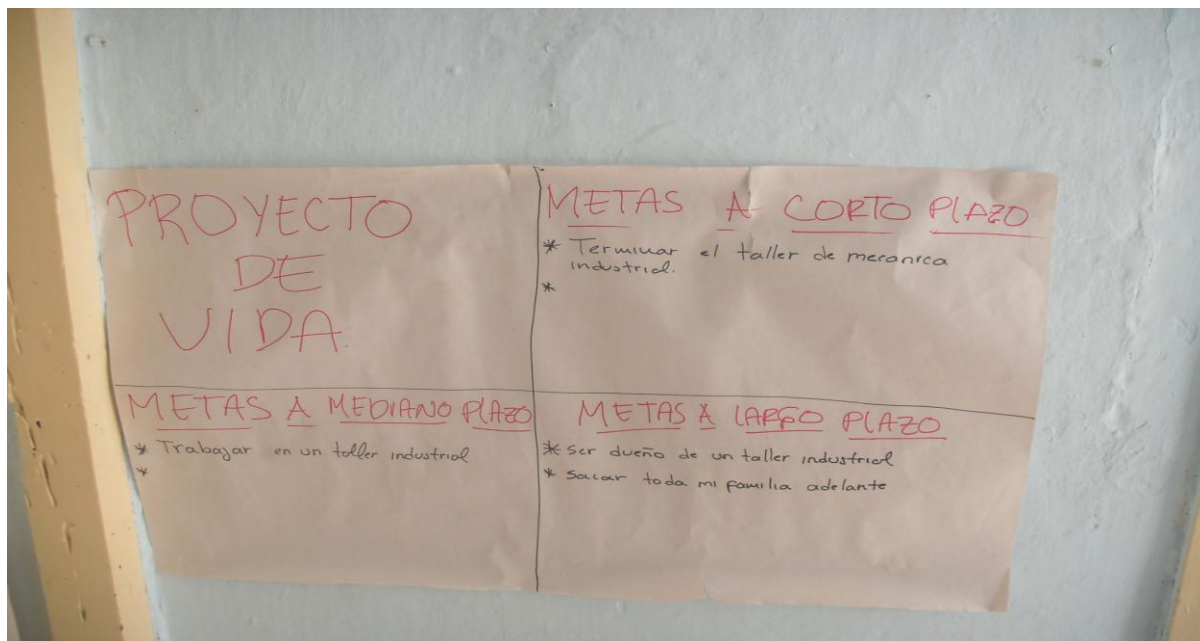 PROYECTO
DE
VIDA.
METAS A CORTO PLAZO
* Terminar el taller de mecanica
industrial.
*
METAS A MEDIANO PLAZO
* Trabajar en un taller industrial
*
METAS A LARGO PLAZO
* Ser dueño de un taller industrial
* Sacar toda mi familia adelante